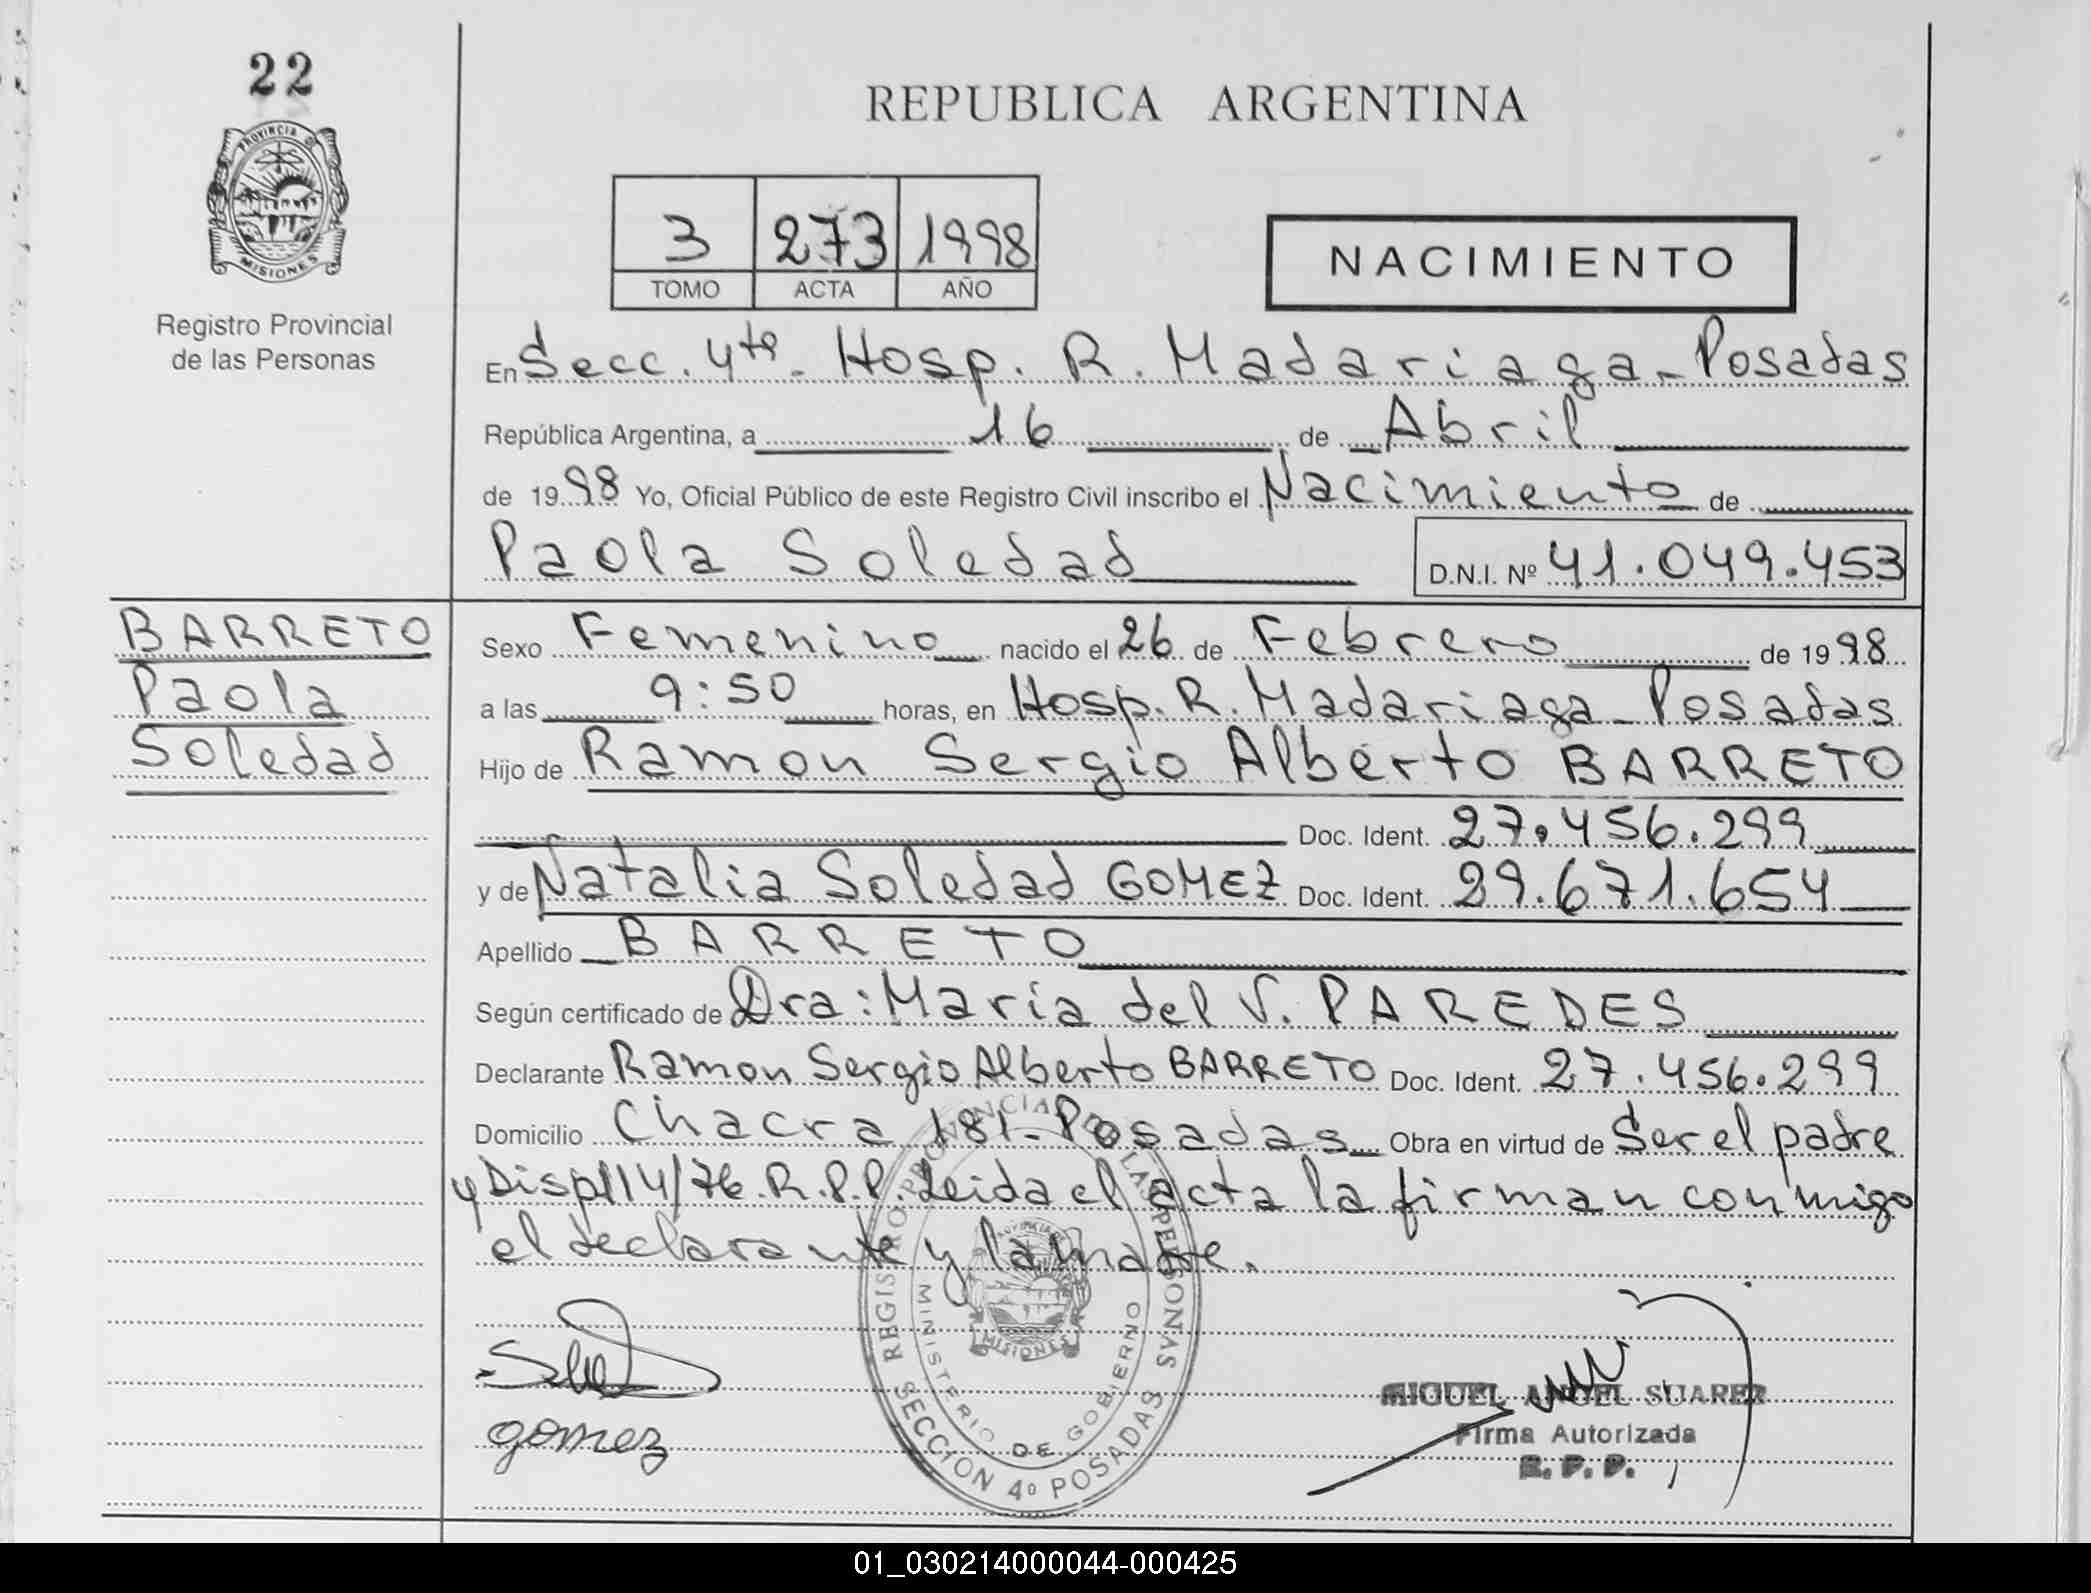 22
PROVINCIA DE
MISIONES
Registro Provincial
de las Personas
REPUBLICA ARGENTINA
3 273 1998
TOMO ACTA AÑO
NACIMIENTO
En Secc. 4ta. Hosp. R. Madariaga - Posadas
República Argentina, a 16 de Abril
de 1998 Yo, Oficial Público de este Registro Civil inscribo el Nacimiento de
Paola Soledad D.N.I. Nº 41.049.453
BARRETO
Paola
Soledad
Sexo Femenino nacido el 26 de Febrero de 1998
a las 9:50 horas, en Hosp. R. Madariaga - Posadas
Hijo de Ramon Sergio Alberto BARRETO
Doc. Ident. 27.456.299
y de Natalia Soledad GOMEZ Doc. Ident. 29.671.654
Apellido BARRETO
Según certificado de Dra: Maria del V. PAREDES
Declarante Ramon Sergio Alberto BARRETO Doc. Ident. 27.456.299
Domicilio Chacra 181 - Posadas Obra en virtud de Ser el padre
y Disp 114/76. R.P.P. Leida el acta la firman conmigo
el declarante y la madre.
REGISTRO PROVINCIAL DE LAS PERSONAS
MINISTERIO DE GOBIERNO
MISIONES
SECCION 4º POSADAS
gomez
MIGUEL ANGEL SUAREZ
Firma Autorizada
R. P. P.
01_030214000044-000425